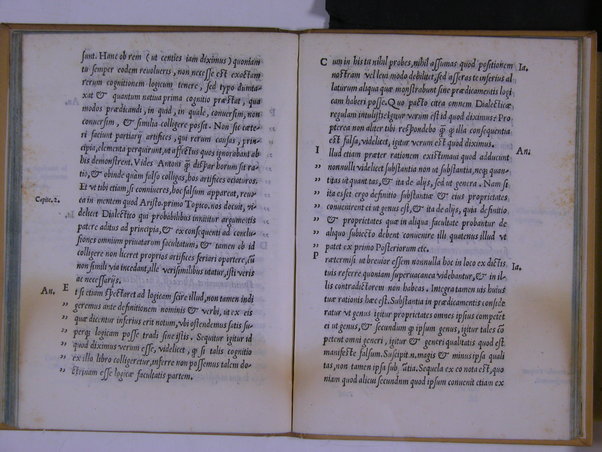 sunt. Hanc ob rem (ut centies iam diximus) quoniam
tu semper eodem revolueris, non necesse est exactam
rerum cognitionem logicum tenere, sed typo dunta-
xat & quantum natura prima cognitio præstat, qua
modos prædicandi, in quid, in quale, conuersim, non
conuersim, & similia colligere possit. Non sic cæte-
ri faciunt partiarij artifices, qui rerum causas, prin-
cipia, elementa perquirunt, ut affectus quos ignorabant ab
his demonstrent. Vides Antoni quàm dispar horum sit ra-
tio, & obinde quàm falso colliges, hos artifices ociaturos.
Et ut tibi etiam, si conniueres, hoc falsum appareat, reuo-
Capite. 2.
ca in mentem quod Aristo. primo Topico. nos docuit, vi-
Ia.
delicet Dialectico qui probabilibus innititur argumentis
patere aditus ad principia, & ex consequenti ad conclu-
siones omnium priuatarum facultatum, & tamen ob id
colligere non liceret proprios artifices feriari oportere, cum
non simili via incedant, ille verisimilibus utatur, isti veris
ac necessarijs.
An.
E t si etiam spectaret ad logicam scire illud, non tamen indi
„ geremus ante definitionem nominis & verbi, at ex eis
„ quæ dicentur inferius erit notum, vbi ostendemus satis su-
„ perque logicam posse tradi sine istis. Sequitur igitur id
„ quod diximus verum esse, videlicet, quod si talis cognitio
„ ex illo libro colligeretur, inferre non possemus talem do-
„ ctrinam esse logicæ facultatis partem.
C um in his tu nihil probes, nihil assumas quod positionem
Ia.
nostram vel leui modo debilitet, sed asseras te inferius al
laturum aliqua quæ monstrabunt sine prædicamentis logi
cam haberi posse. Quo pacto citra omnem Dialecticæ
regulam intulisti: Igitur verum est id quod diximus? Pro-
pterea non aliter tibi respondebo quàm illa consequentia
est falsa, videlicet, igitur verum est quod diximus.
I llud etiam præter rationem existimaui quod adducunt
An.
„ nonnulli videlicet substantia non est substantia, neque quan-
„ titas ut quantitas, & ita de alijs, sed ut genera. Nam si
„ ita esset ergo definitio substantiæ & eius proprietates
„ conuenirent ei ut genus est, & ita de alijs, quia definitio
„ & proprietates quæ in aliqua facultate probantur de
„ aliquo subiecto debent conuenire illi quatenus illud ut
„ patet ex primo Posteriorum etc.
P rætermisi ut breuior essem nonnulla hoc in loco ex dictis
Ia.
tuis referre quoniam superuacanea videbantur, & in il-
lis contradictorem non habeas. Integra tamen uis huius
tuæ rationis hæc est. Substantia in prædicamentis conside
ratur ut genus igitur proprietates omnes ipsius competent
ei ut genus, & secundum quod ipsum genus, igitur tales com
petent omni generi, igitur & generi qualitatis quod est
manifeste falsum. Suscipit nanque magis & minus ipsa quali
tas, non tamen ipsa substantia. Sequela ex eo nota est, quo
niam quod alicui secundum quod ipsum conuenit etiam ex